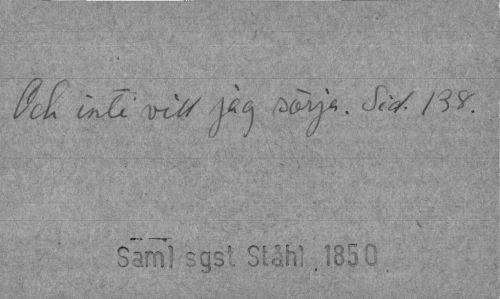 Och inte vill jag sörja. Sid. 138.
Saml sgst Ståhl 1850